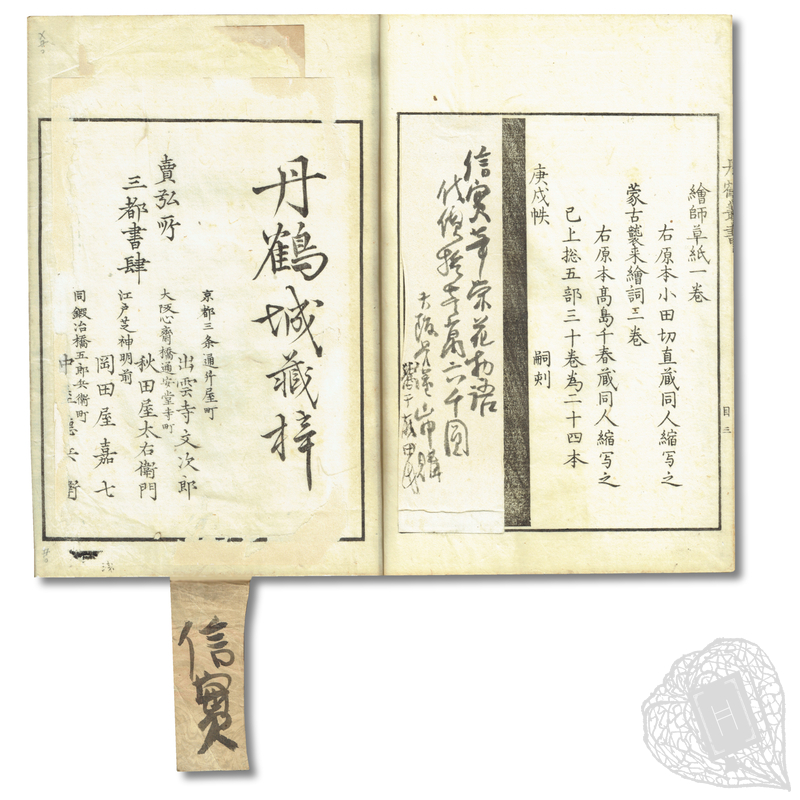 繪師草紙一卷
右原本小田切直蔵同人縮写之
蒙古襲来繪詞二卷
右原本髙島千春蔵同人縮写之
已上捴五部三十卷為二十四本
庚戌帙
嗣刻
目三
信實筆
物語
六千圓
大阪
丹鶴城蔵梓
賣弘所
三都書肆
京都三条通舛屋町
出雲寺文次郎
大阪心齋橋通安堂寺町
秋田屋太右衛門
江戸芝神明前
岡田屋嘉七
同鍜冶橋五郎兵衛町
中屋德兵衛
信實
H